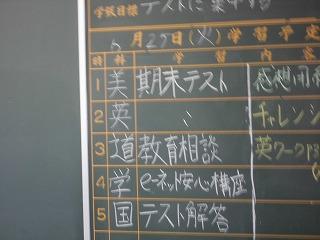 学級目標 テストに集中する
6月29日(火)学習予定
時 科 学習内容
1 美 期末テスト
2 英 〃 チャレンジ
3 道 教育相談 英ワーク
4 学 e-ネット安心講座
5 国 テスト解答